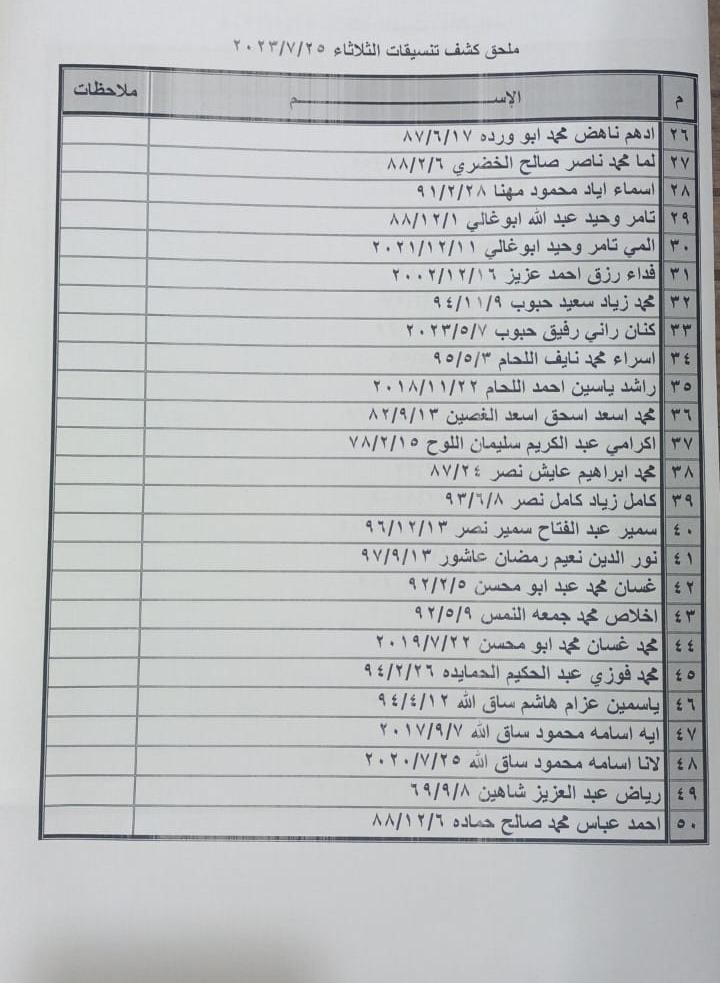 ملحق كشف تنسيقات الثلاثاء ٢٠٢٣/٧/٢٥
م الإســـــــم ملاحظات
٢٦ ادهم ناهض محمد ابو ورده ٨٧/٦/١٧
٢٧ لما محمد ناصر صالح الخضري ٨٨/٢/٦
٢٨ اسماء اياد محمود مهنا ٩١/٢/٢٨
٢٩ تامر وحيد عبد الله ابوغالي ٨٨/١٢/١
٣٠ المي تامر وحيد ابوغالي ٢٠٢١/١٢/١١
٣١ فداء رزق احمد عزيز ٢٠٠٢/١٢/١٦
٣٢ محمد زياد سعيد حبوب ٩٤/١١/٩
٣٣ كنان راني رفيق حبوب ٢٠٢٣/٥/٧
٣٤ اسراء محمد نايف اللحام ٩٥/٥/٣
٣٥ راشد ياسين احمد اللحام ٢٠١٨/١١/٢٢
٣٦ محمد اسعد اسحق اسعد الغصين ٨٢/٩/١٣
٣٧ اكرامي عبد الكريم سليمان اللوح ٧٨/٢/١٥
٣٨ محمد ابراهيم عايش نصر ٨٧/٢٤
٣٩ كامل زياد كامل نصر ٩٣/٦/٨
٤٠ سمير عبد الفتاح سمير نصر ٩٦/١٢/١٣
٤١ نور الدين نعيم رمضان عاشور ٩٧/٩/١٣
٤٢ غسان محمد عبد ابو محسن ٩٢/٢/٥
٤٣ اخلاص محمد جمعه النمس ٩٢/٥/٩
٤٤ محمد غسان محمد ابو محسن ٢٠١٩/٧/٢٢
٤٥ محمد فوزي عبد الحكيم الحمايده ٩٤/٢/٢٦
٤٦ ياسمين عزام هاشم ساق الله ٩٤/٤/١٢
٤٧ ايه اسامه محمود ساق الله ٢٠١٧/٩/٧
٤٨ لانا اسامه محمود ساق الله ٢٠٢٠/٧/٢٥
٤٩ رياض عبد العزيز شاهين ٦٩/٩/٨
٥٠ احمد عباس محمد صالح حماده ٨٨/١٢/٦